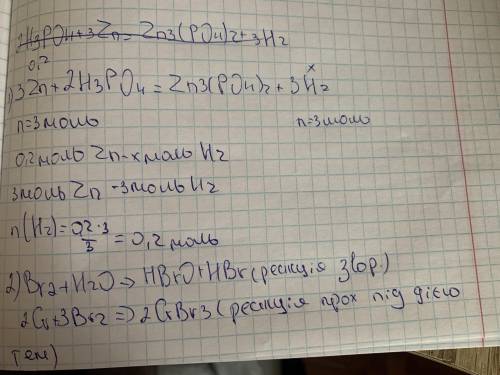 2H3PO4+3Zn=Zn3(PO4)2+3H2
0,2 x
1) 3Zn+2H3PO4=Zn3(PO4)2+3H2
n=3моль n=3моль
0,2 моль Zn-xмоль H2
3моль Zn -3моль H2
n(H2)=0,2·3/3=0,2 моль
2) Br2+H2O⇒HBrO+HBr(реакція звор.)
2Cr+3Br2⇒2CrBr3(реакція прох під дією
тем)